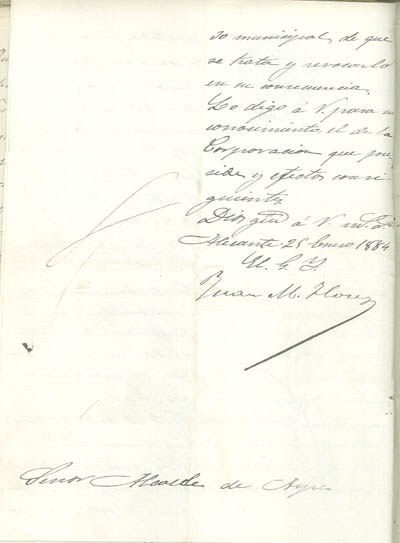 do municipal de que
se trata y revocarlo
en su consecuencia.
Lo digo á V. para su
conocimiento, el de la
Corporacion que pre
side y efectos consi
guientes.
Dios gue á V. m.s a.s
Alicante 25 Enero 1884
El G. I.
Juan M. Florez
Señor Alcalde de Aspe